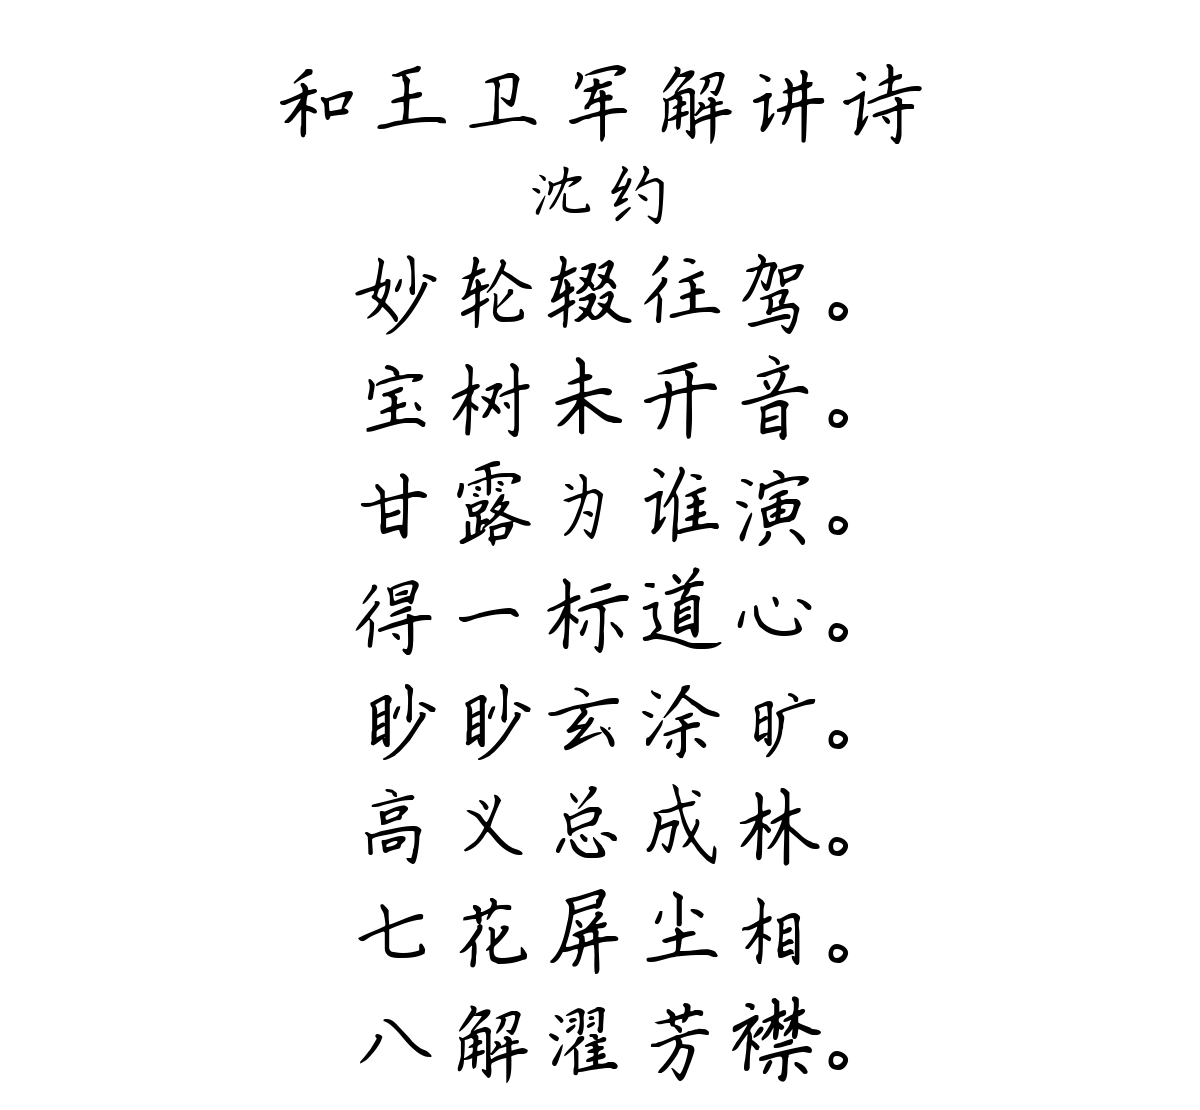 和王卫军解讲诗
沈约
妙轮辍往驾。
宝树未开音。
甘露为谁演。
得一标道心。
眇眇玄涂旷。
高义总成林。
七花屏尘相。
八解濯芳襟。